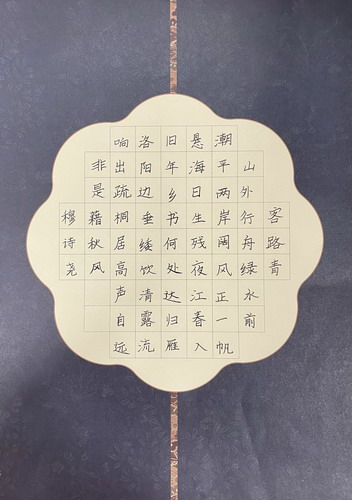 客路青
山外行舟绿水前
潮平两岸阔风正一帆
悬海日生残夜江春入
旧年乡书何处达归雁
洛阳边垂緌饮清露流
响出疏桐居高声自远
非是藉秋风
穆诗尧